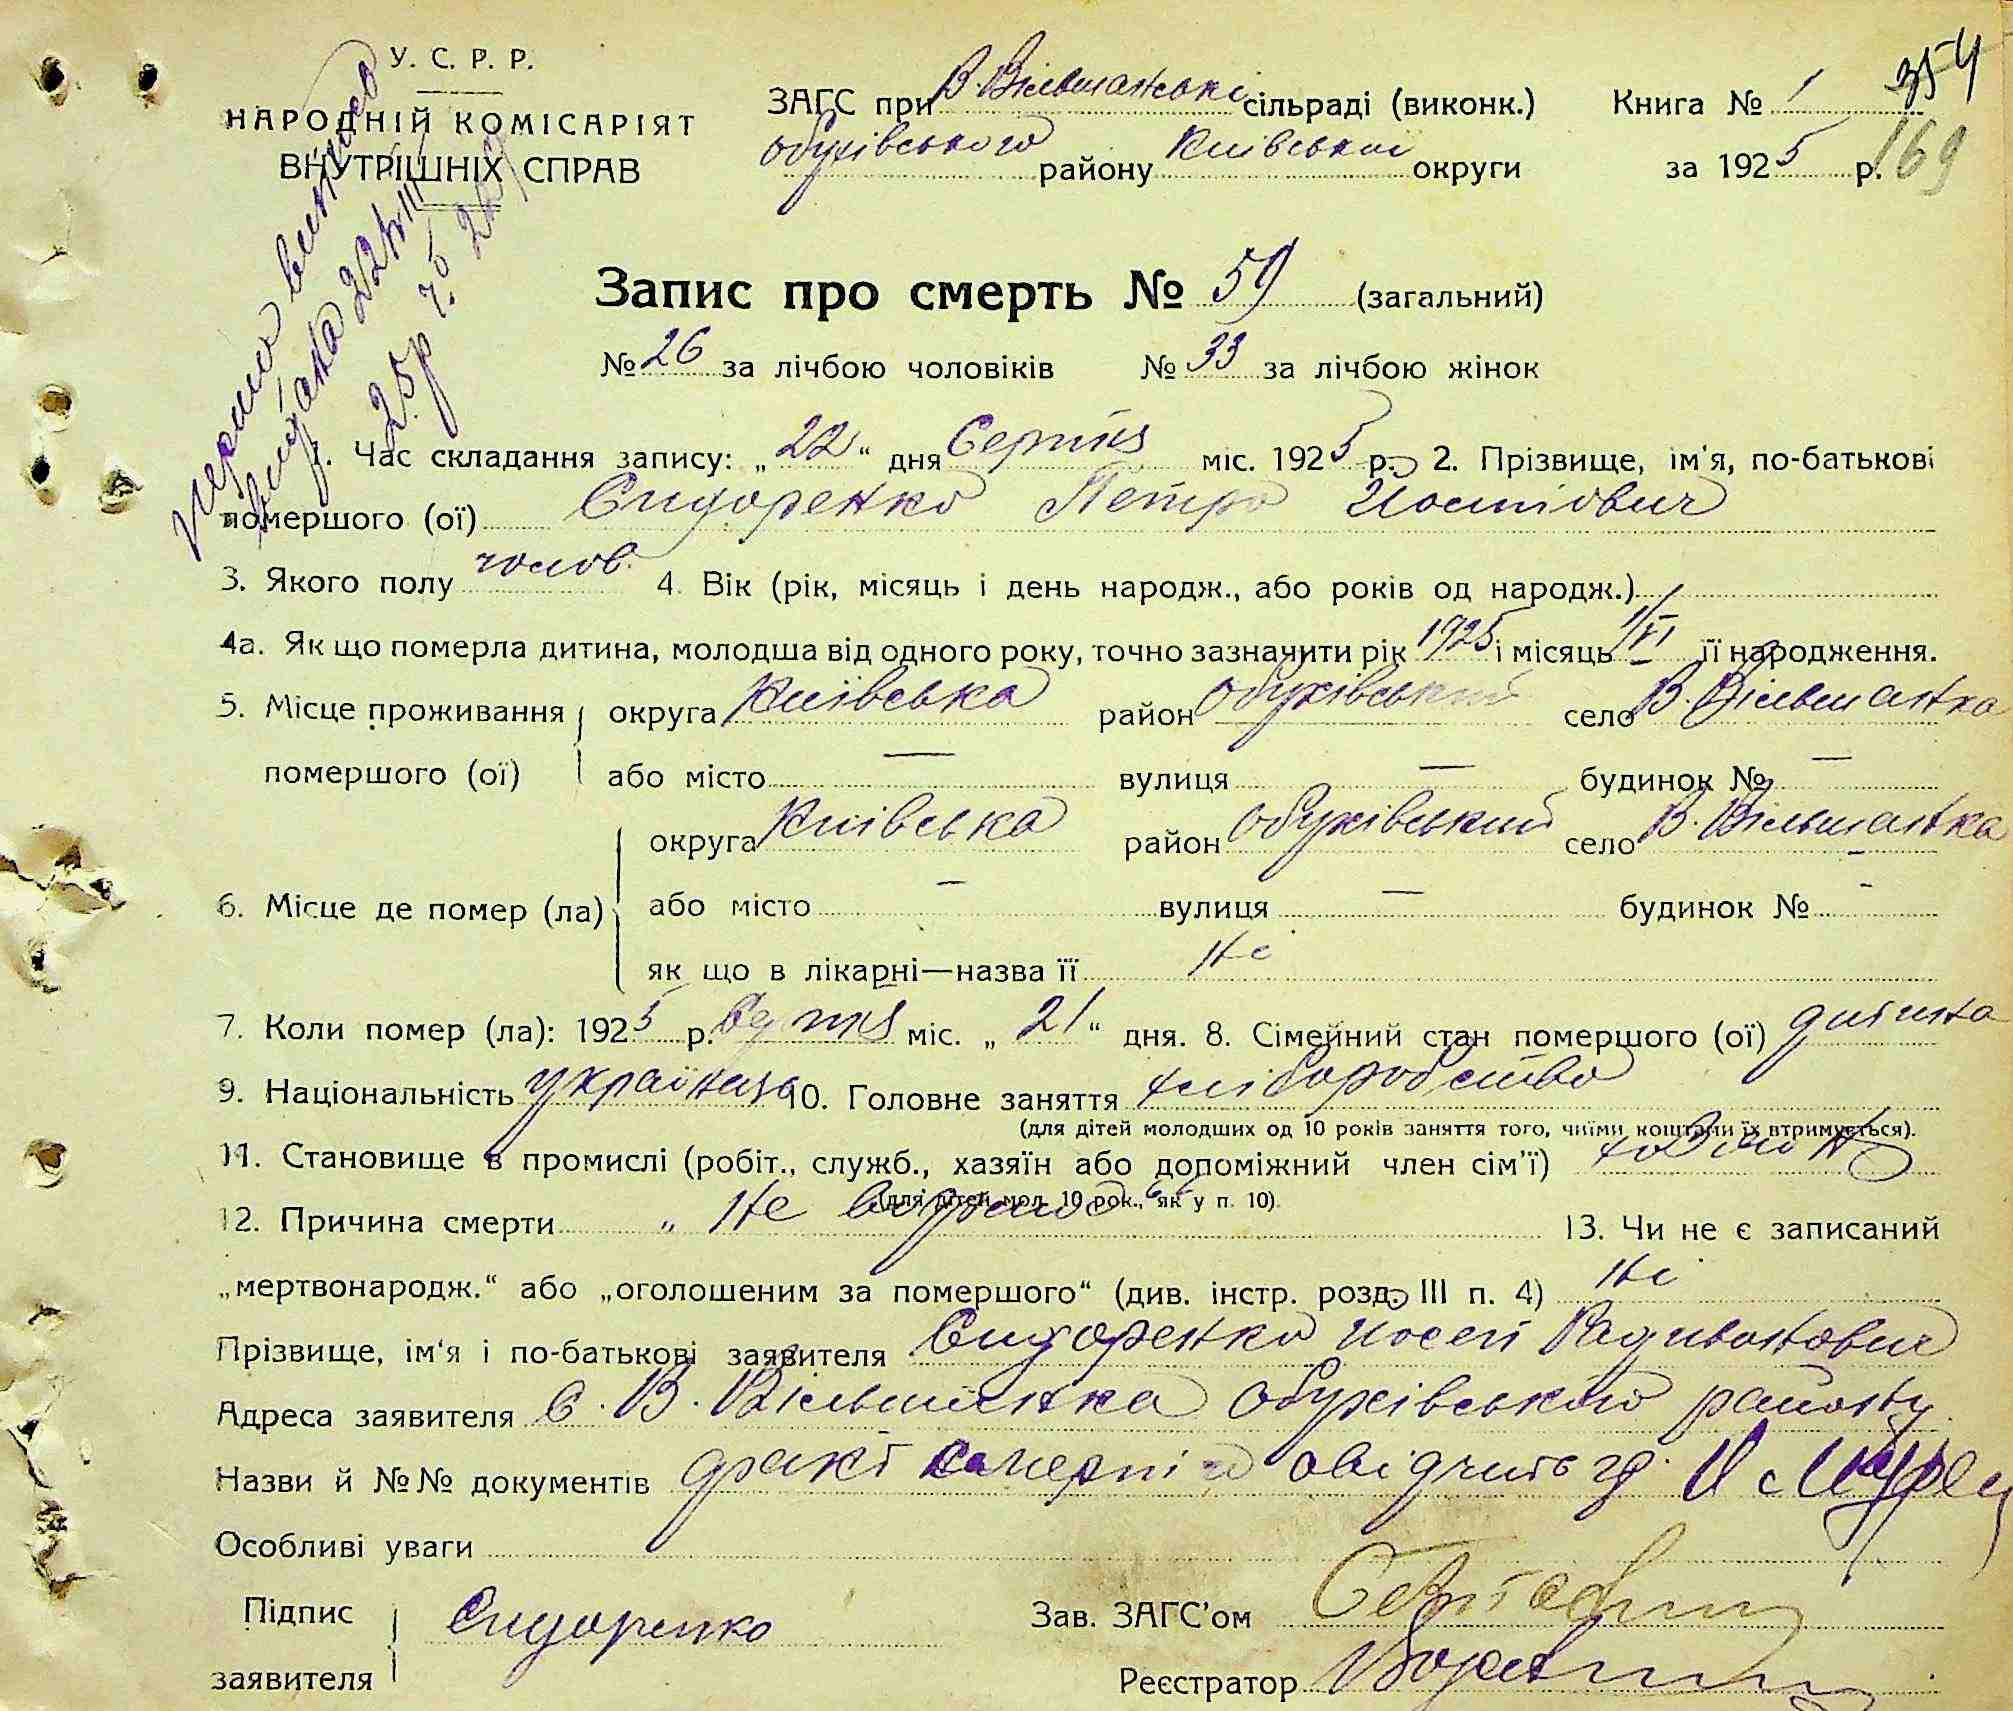 У. С. Р. Р.
НАРОДНІЙ КОМІСАРІЯТ
ВНУТРІШНІХ СПРАВ
ЗАГС при В. Вільшанські сільраді (виконк.)
Обухівського району Київської округи
Книга № 1 354
за 1925 р. 169
перша виписка
видана 22/VIII
25 р. ч.
Запис про смерть № 59 (загальний)
№ 26 за лічбою чоловіків № 33 за лічбою жінок
1. Час складання запису: „22“ дня Серпня міс. 1925 р. 2. Прізвище, ім'я, по-батькові
помершого (ої) Сидоренко Петро Йосипович
3. Якого полу чолов. 4. Вік (рік, місяць і день народж., або років од народж.)
4а. Як що померла дитина, молодша від одного року, точно зазначити рік 1925 і місяць 1/VI її народження.
5. Місце проживання округа Київська район Обухівський село В. Вільшанка
помершого (ої) або місто — вулиця — будинок № —
округа Київська район Обухівський село В. Вільшанка
6. Місце де помер (ла) або місто — вулиця — будинок № -
як що в лікарні—назва її Ні
7. Коли помер (ла): 1925 р. Серпня міс. „21“ дня. 8. Сімейний стан помершого (ої) дитина
9. Національність українець 10. Головне заняття хліборобство
(для дітей молодших од 10 років заняття того, чиїми коштами їх втримується).
11. Становище в промислі (робіт., служб., хазяїн або допоміжний член сім'ї)
(для дітей мол. 10 рок., як у п. 10).
12. Причина смерти „Не 13. Чи не є записаний
„мертвонародж.“ або „оголошеним за помершого“ (див. інстр. розд. III п. 4) Ні
Прізвище, ім'я і по-батькові заявителя Сидоренко Иосеп Радивонович
Адреса заявителя С. В. Вільшанка Обухівського району
Назви й №№ документів факт смерті свідчить гр.
Особливі уваги
Підпис
заявителя Сидоренко
Зав. ЗАГС'ом
Реєстратор